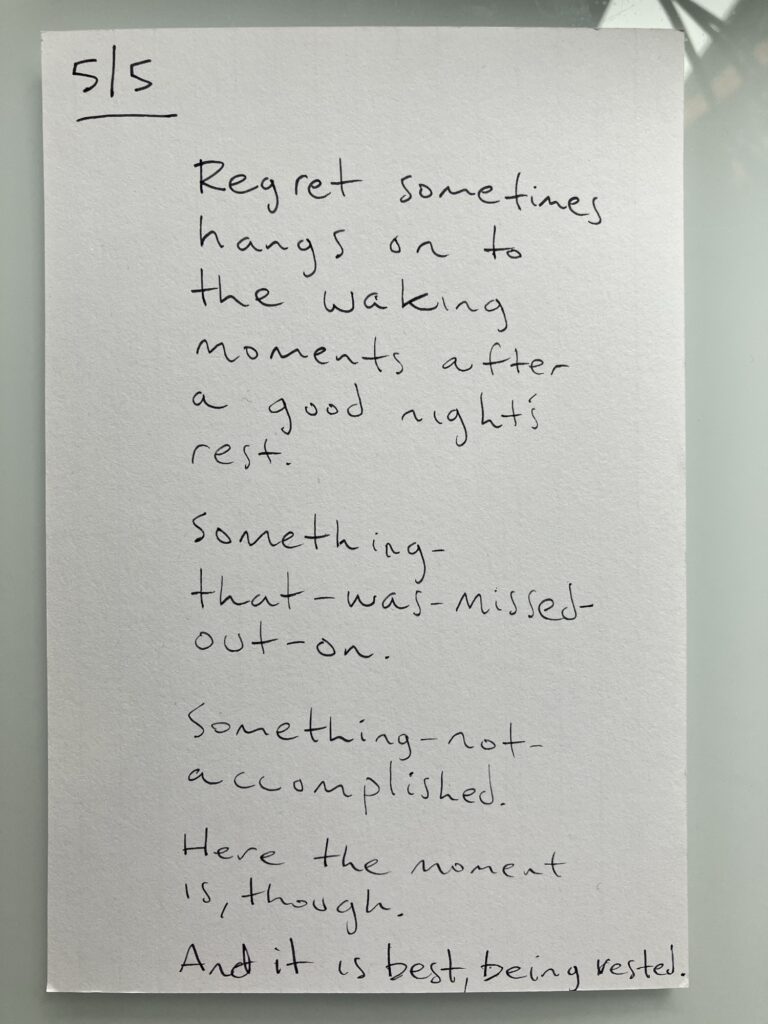 5/5
Regret sometimes
hangs on to
the waking
moments after
a good night's
rest.
Something-
that-was-missed-
out-on.
Something-not-
accomplished.
Here the moment
is, though.
And it is best, being rested.